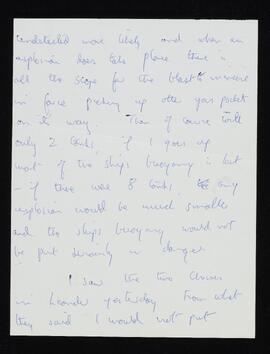 undetected more likely and when an
explosion does take place there is
all the scope for the blast to increase
in force picking up other gas pockets
on its way. Then of course with
only 2 tanks, if 1 goes up
most of the ships buoyancy is but
- if there was 8 tanks, any
explosion would be much smaller
and the ships buoyancy would not
be put seriously in danger.
I saw the two
in London yesterday. From what
they said I would not put